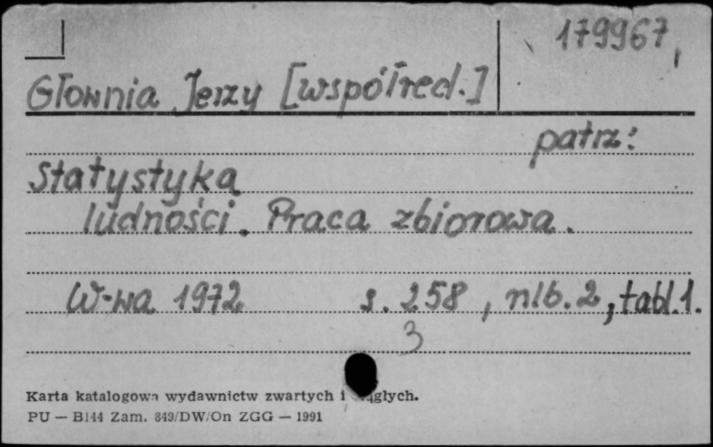 179967
Głownia Jerzy [współred.]
patrz:
Statystyka
ludności. Praca zbiorowa.
W-wa 1972 s. 258, nlb. 2, tabl. 1.
3
Karta katalogowa wydawnictw zwartych i ciągłych.
PU — B144 Zam. 849/DW/On ZGG — 1991